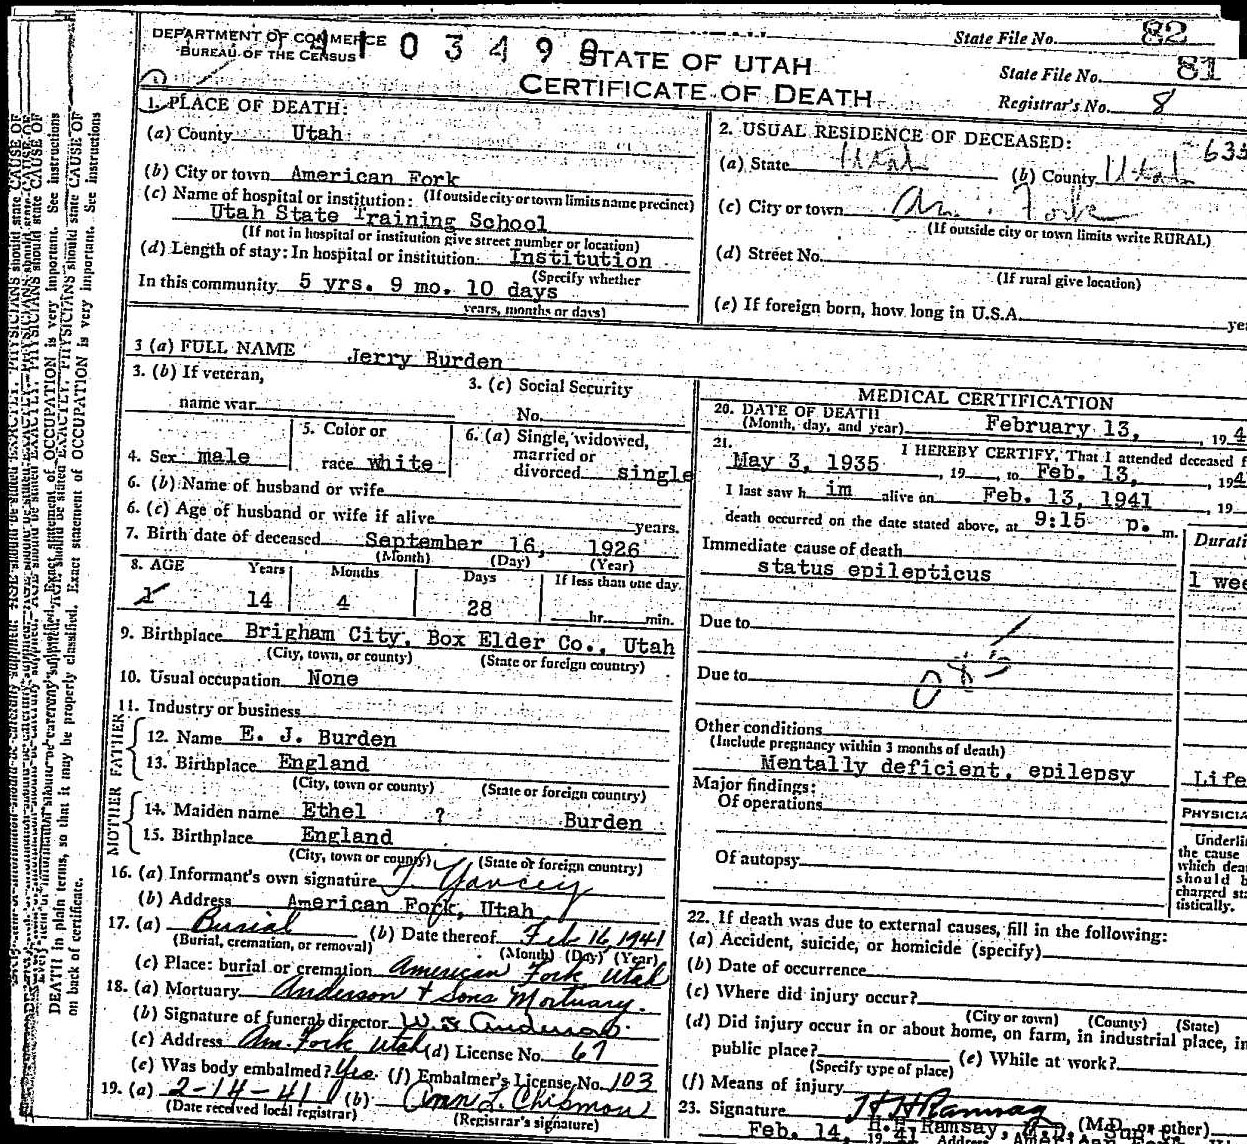 DEPARTMENT OF COMMERCE
BUREAU OF THE CENSUS
State File No. 82
STATE OF UTAH
CERTIFICATE OF DEATH
State File No. 81
Registrar's No. 8
1. PLACE OF DEATH:
(a) County Utah
(b) City or town American Fork
(If outside city or town limits name precinct)
(c) Name of hospital or institution:
Utah State Training School
(If not in hospital or institution give street number or location)
(d) Length of stay: In hospital or institution Institution
(Specify whether
In this community 5 yrs. 9 mo. 10 days
years, months or days)
2. USUAL RESIDENCE OF DECEASED:
(a) State Utah (b) County Utah
(c) City or town Am. Fork
(If outside city or town limits write RURAL)
(d) Street No.
(If rural give location)
(e) If foreign born, how long in U.S.A.
3 (a) FULL NAME Jerry Burden
3. (b) If veteran,
name war
3. (c) Social Security
No.
4. Sex male
5. Color or
race white
6. (a) Single, widowed,
married or
divorced single
6. (b) Name of husband or wife
6. (c) Age of husband or wife if alive years.
7. Birth date of deceased September 16, 1926
(Month) (Day) (Year)
8. AGE Years Months Days If less than one day
14 4 28 hr. min.
9. Birthplace Brigham City, Box Elder Co., Utah
(City, town, or county) (State or foreign country)
10. Usual occupation None
11. Industry or business
FATHER
12. Name E. J. Burden
13. Birthplace England
(City, town or county) (State or foreign country)
MOTHER
14. Maiden name Ethel ? Burden
15. Birthplace England
(City, town or county) (State or foreign country)
16. (a) Informant's own signature T. Yancey
(b) Address American Fork, Utah
17. (a) Burial (b) Date thereof Feb 16, 1941
(Burial, cremation, or removal) (Month) (Day) (Year)
(c) Place: burial or cremation American Fork Utah
18. (a) Mortuary Anderson & Sons Mortuary.
(b) Signature of funeral director W. S. Anderson
(c) Address Am. Fork Utah (d) License No. 67
(e) Was body embalmed? Yes. (f) Embalmer's License No. 103
19. (a) 2-14-41 (b) Ann L. Chipman
(Date received local registrar) (Registrar's signature)
MEDICAL CERTIFICATION
20. DATE OF DEATH
(Month, day, and year) February 13, , 19 4
21. I HEREBY CERTIFY, That I attended deceased f
May 3, 1935 , 19 , to Feb. 13, , 194
I last saw h im alive on Feb. 13, 1941 , 19
death occurred on the date stated above, at 9:15 p. m.
Immediate cause of death
status epilepticus
Due to
Due to
Other conditions
(Include pregnancy within 3 months of death)
Mentally deficient, epilepsy
Life
Major findings:
Of operations
Of autopsy
22. If death was due to external causes, fill in the following:
(a) Accident, suicide, or homicide (specify)
(b) Date of occurrence
(c) Where did injury occur?
(City or town) (County) (State)
(d) Did injury occur in or about home, on farm, in industrial place, in
public place? (e) While at work?
(Specify type of place)
(f) Means of injury
23. Signature H H Ramsay
(M.D. or other)
Feb. 14, 1941
DEATH in plain terms, so that it may be properly classified. Exact statement of OCCUPATION is very important. See instructions
on back of certificate.